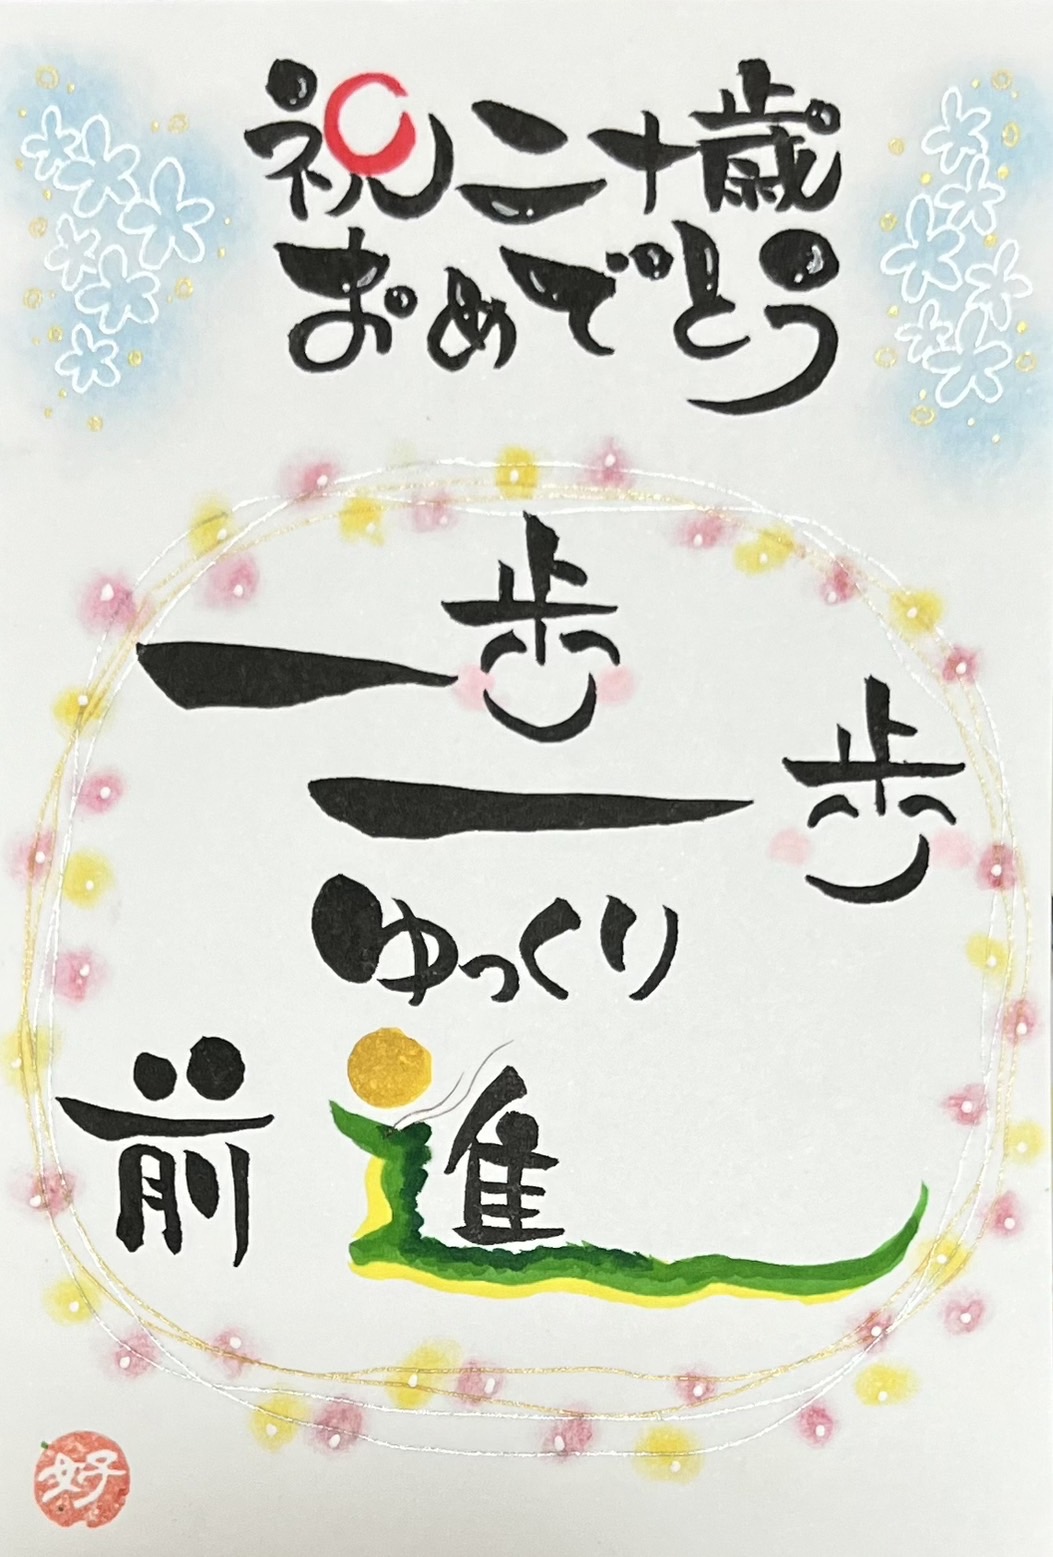 祝二十歳
おめでとう
一歩
一歩
ゆっくり
前進
好